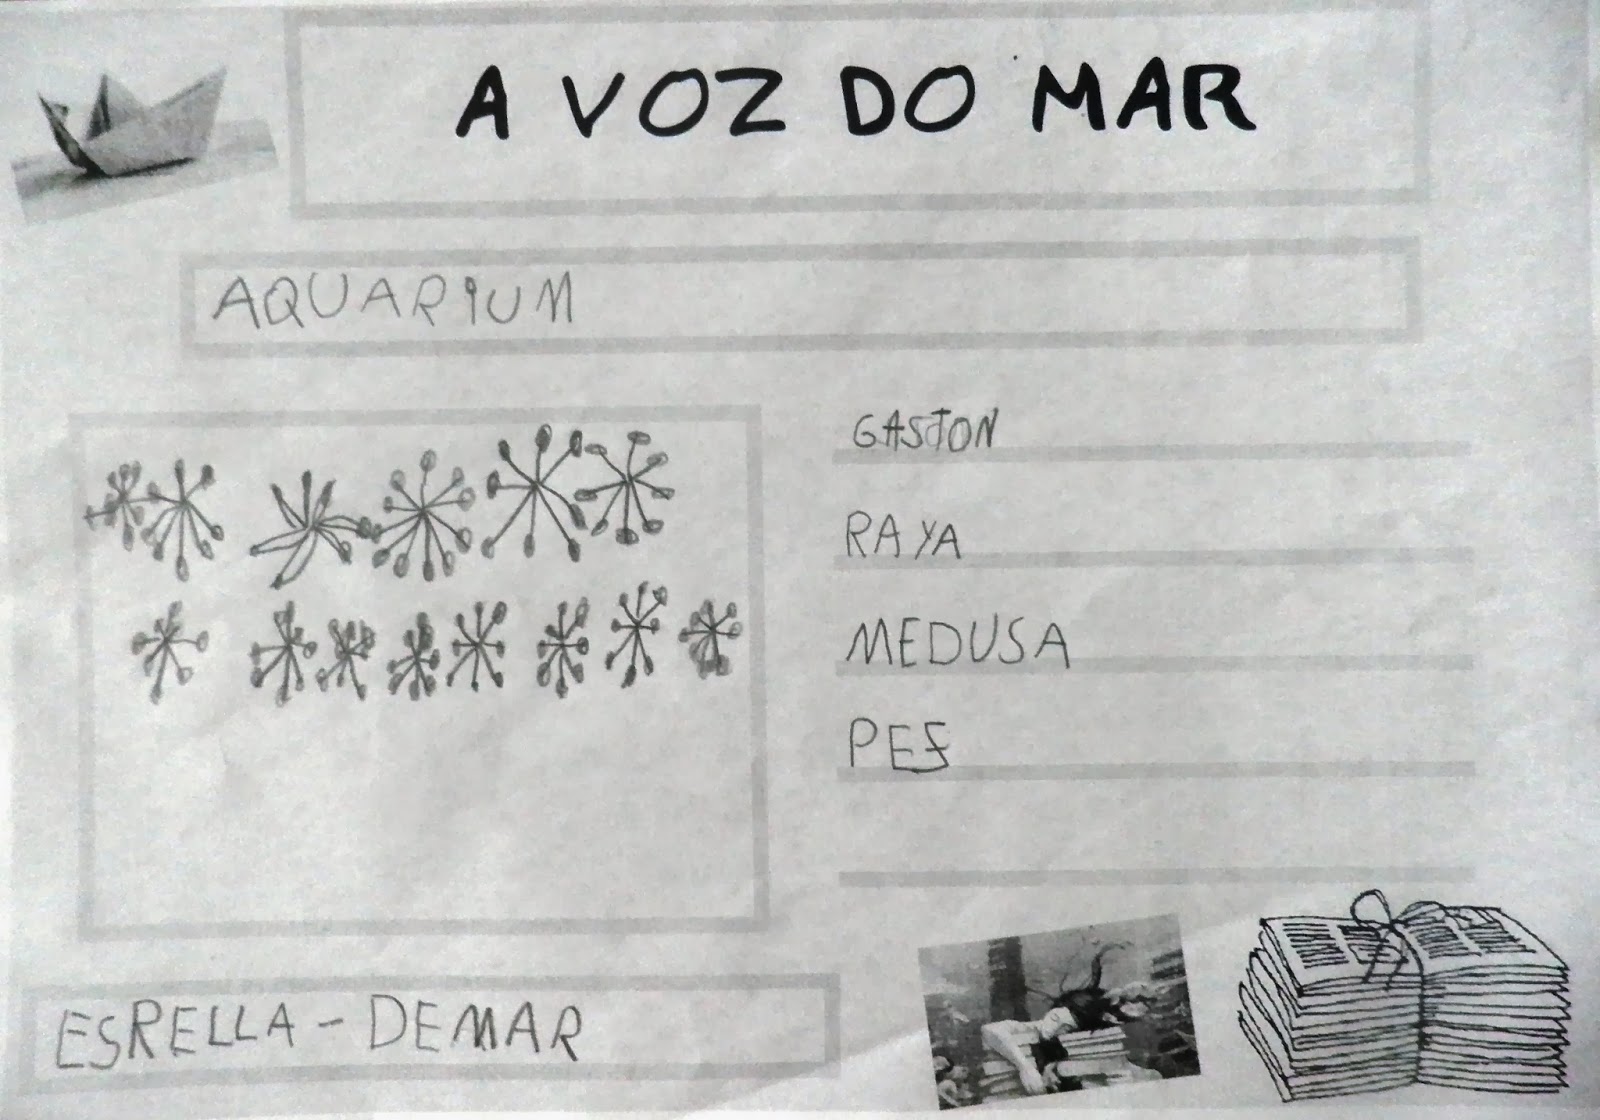 A VOZ DO MAR
AQUARIUM
GASTON
RAYA
MEDUSA
PES
ESRELLA - DEMAR